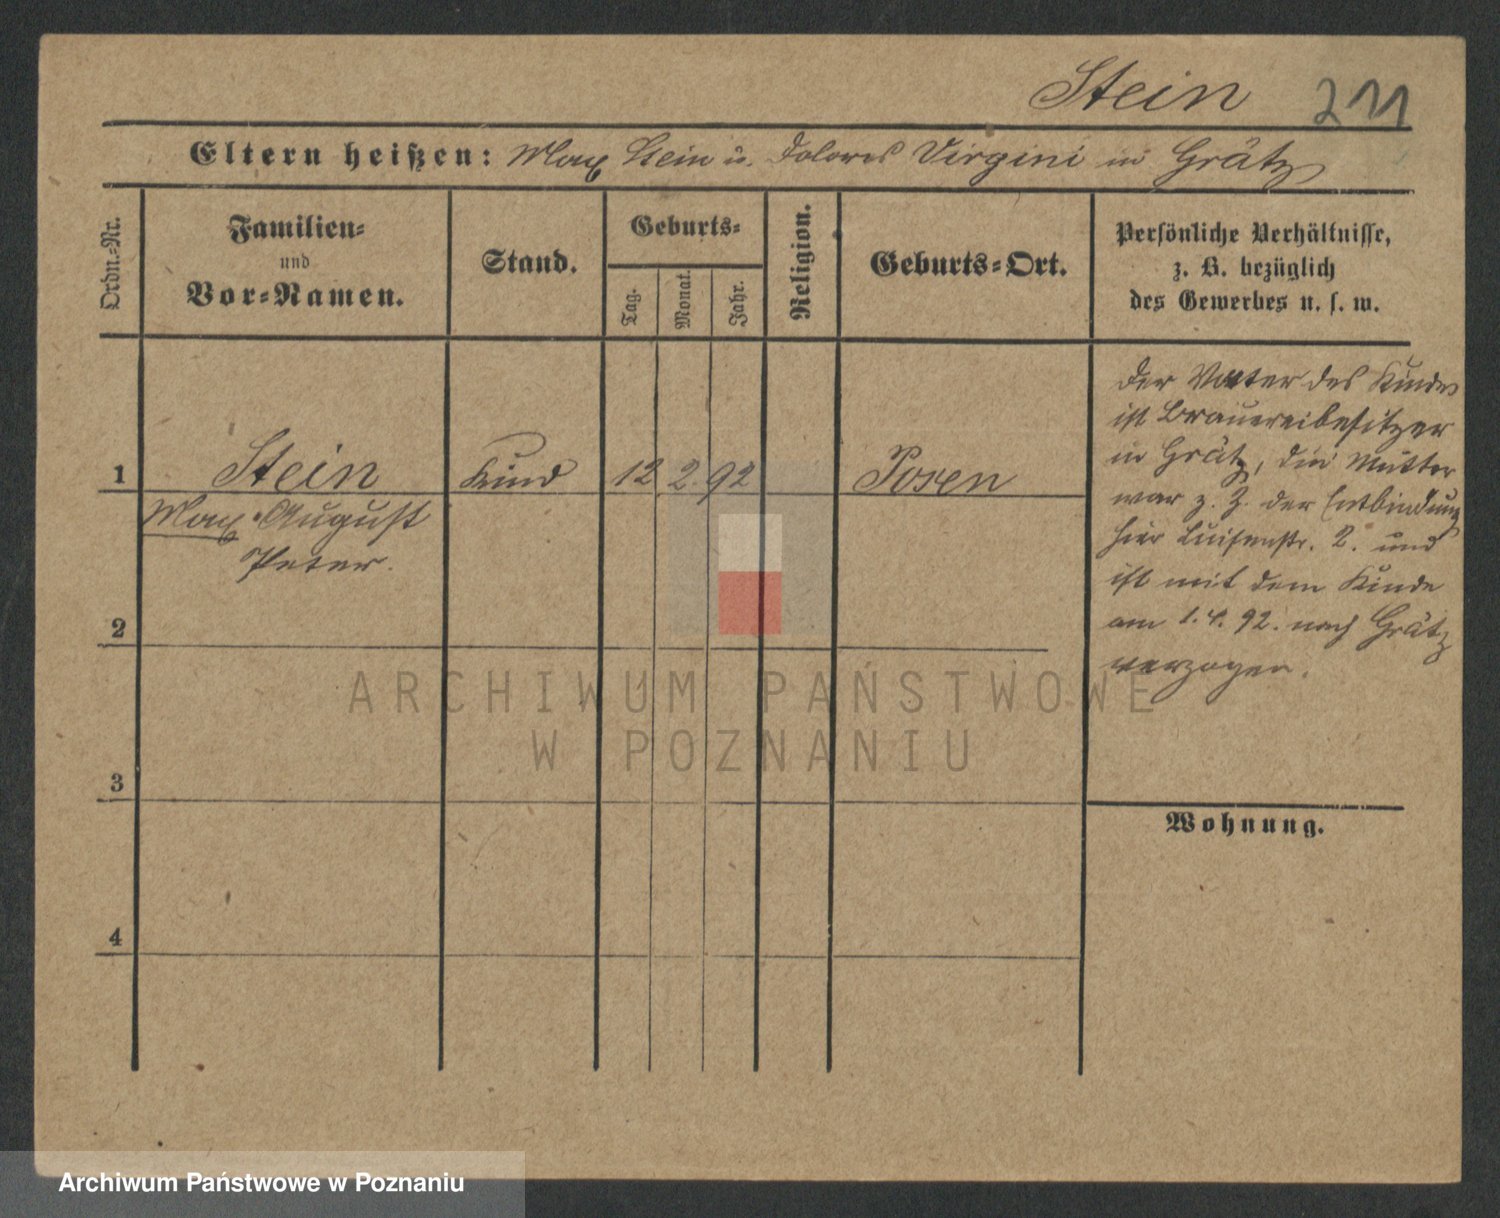 Stein 211
Eltern heißen: Max Stein u. Dolores Virgini in Grätz
Ordn.-Nr.
Familien-
und
Vor-Namen.
Stand.
Geburts-
Tag.
Monat.
Jahr.
Religion.
Geburts-Ort.
Persönliche Verhältnisse,
z. B. bezüglich
des Gewerbes u. s. w.
1 Stein Kind 12 2. 92 Posen
Max August
Peter.
2
3
4
Der Vater des Kindes
ist Brauereibesitzer
in Grätz, die Mutter
war z. Z. der Entbindung
hier Luisenstr. 2. und
ist mit dem Kinde
am 1.4.92. nach Grätz
verzogen.
Wohnung.
ARCHIWUM PAŃSTWOWE
W POZNANIU
Archiwum Państwowe w Poznaniu